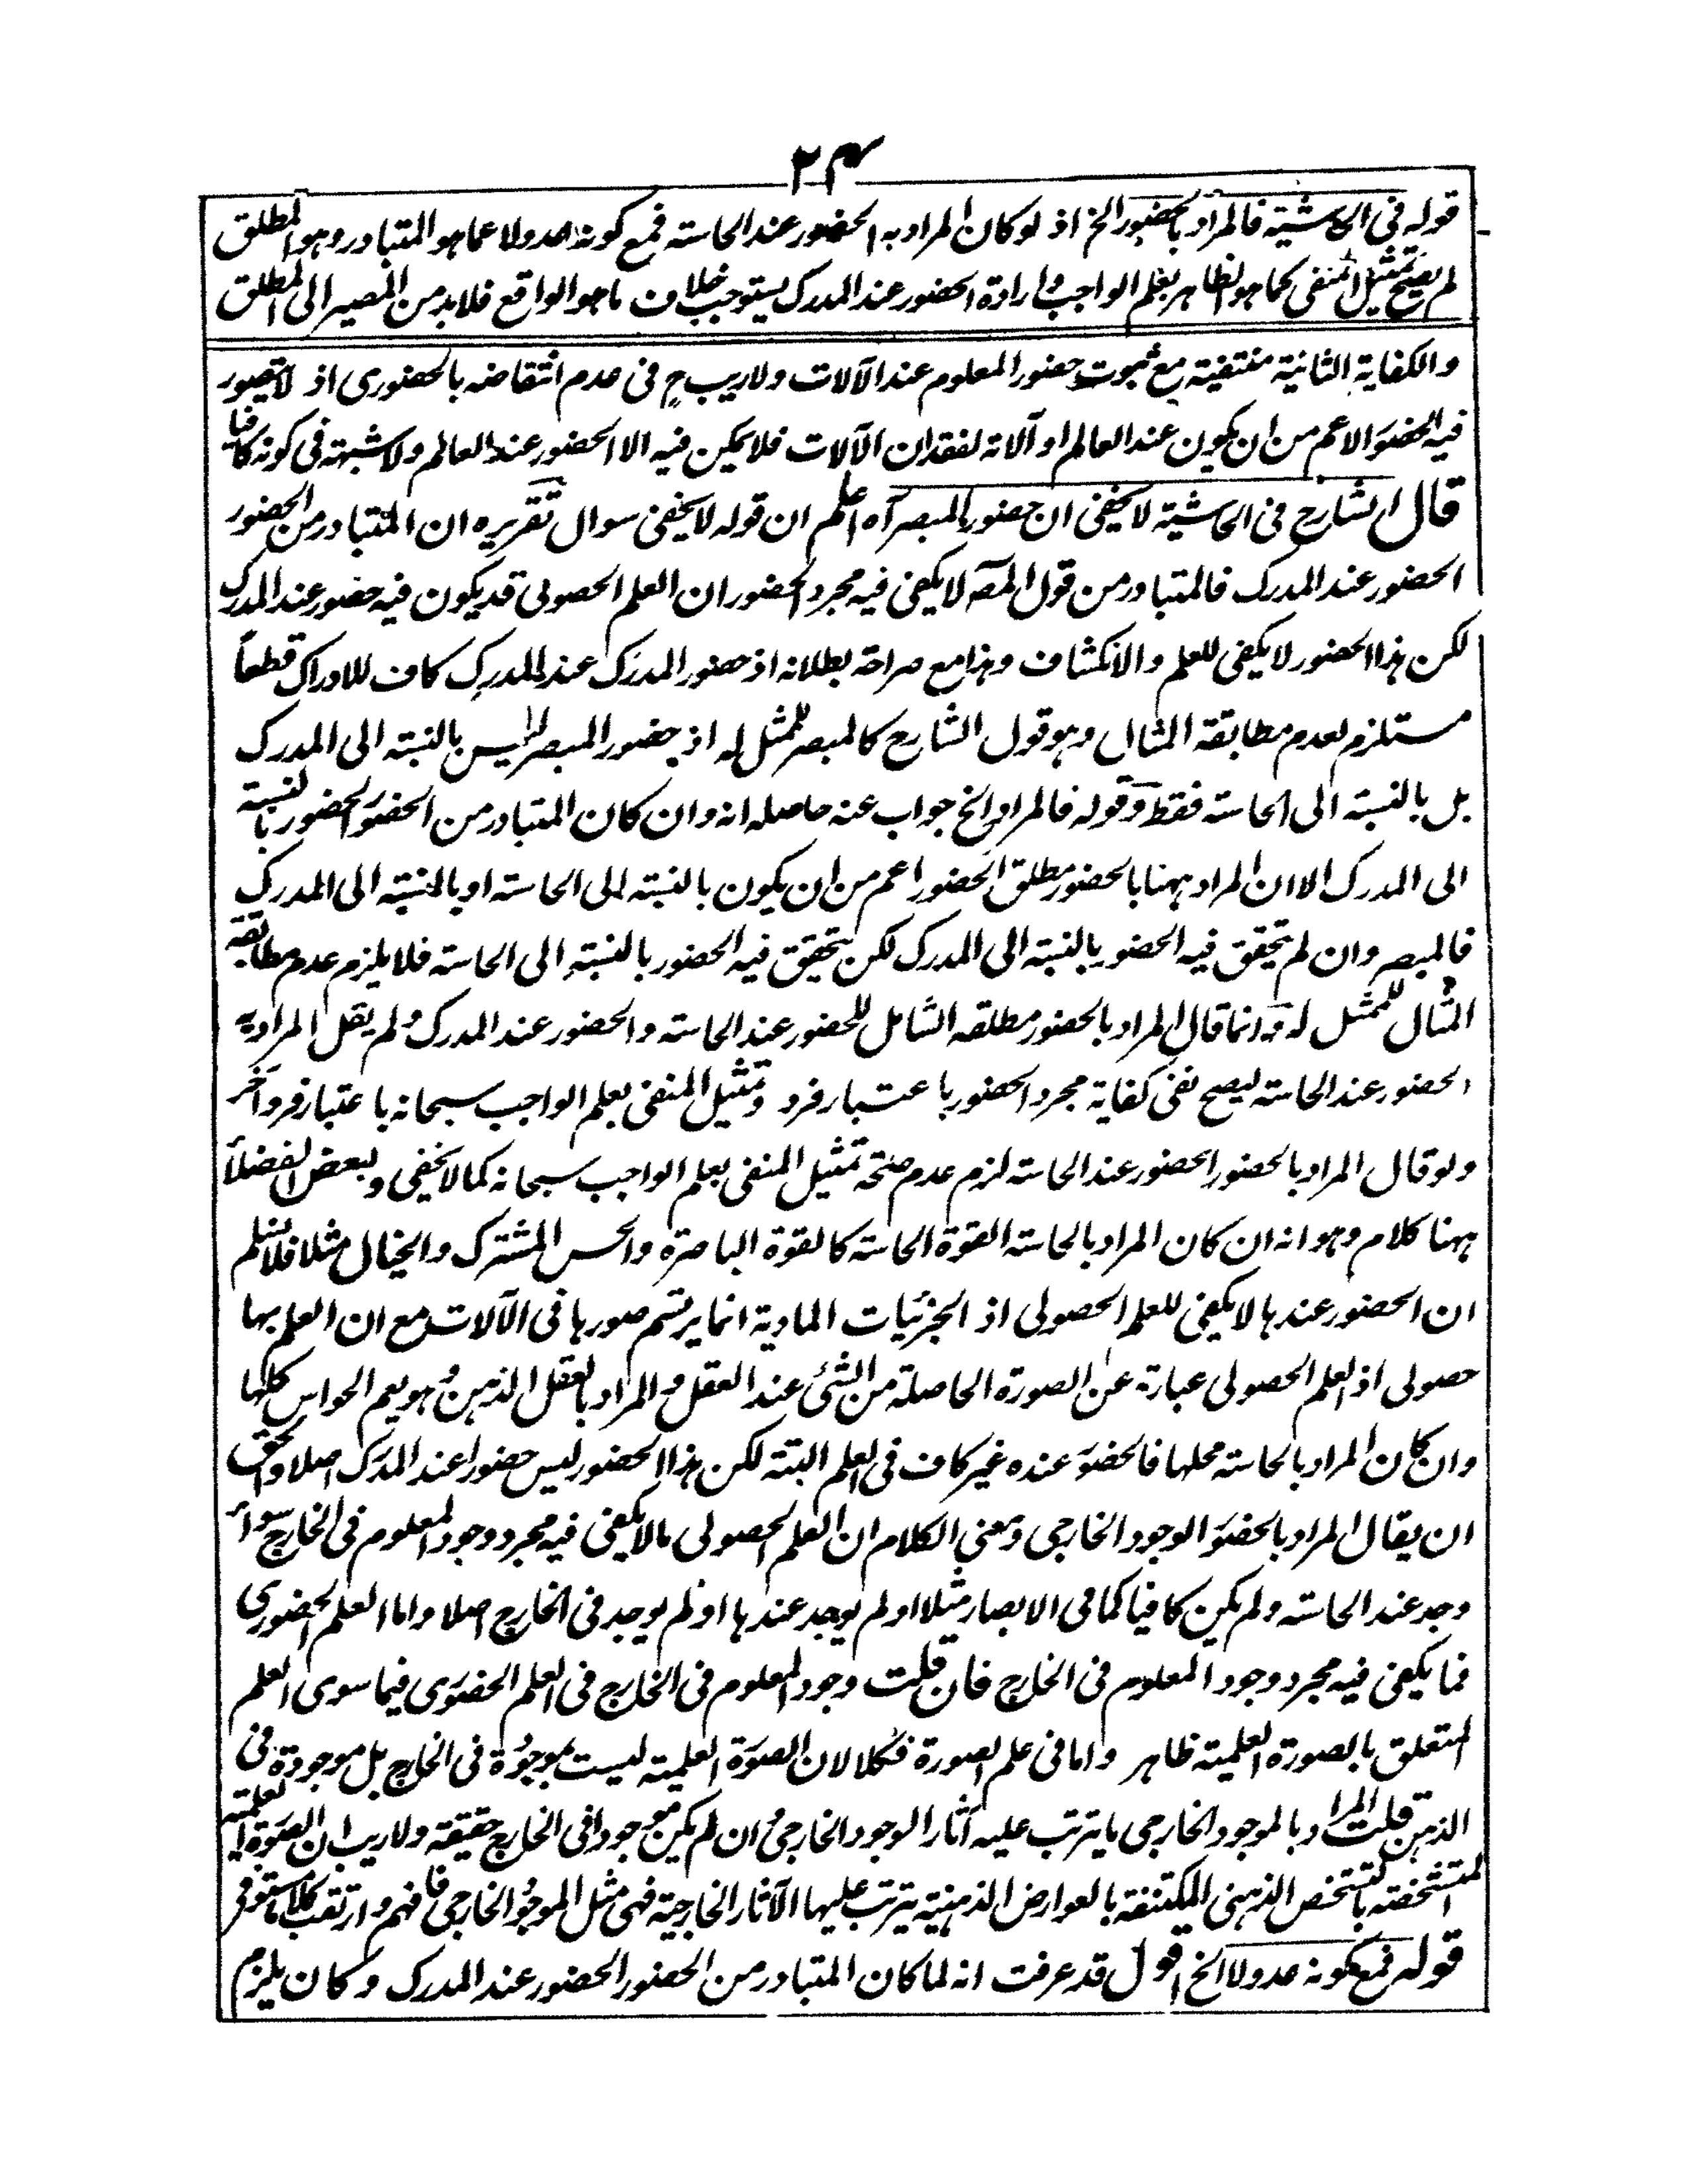 ٢٤
قوله فى الحاشية فالمراد بالحضور الخ اذ لو كان المراد به الحضور عند الحاسته فمع كونه عدولا عما هو المتبادر وهو المطلق
لم يصح تمثيل المنفى كما هو الظاهر بعلم الواجب وارادة الحضور عند المدرك يستوجب خلاف ما هو الواقع فلا بد من المصير الى المطلق
والكفاية الثانية منتفية مع ثبوت حضور المعلوم عند الآلات ولا ريب ح فى عدم انتقاضه بالحضورى اذ لا يتصور
فيه الحضور الاعم من ان يكون عند العالم او آلاته لفقدان الآلات فلا يمكن فيه الا الحضور عند العالم ولا شبهة فى كونه كافيا
قال الشارح فى الحاشية لا يخفى ان حضور المبصر آه اعلم ان قوله لا يخفى سوال تقريره ان المتبادر من الحضور
الحضور عند المدرك فالمتبادر من قول المصه لا يكفى فيه مجرد الحضور ان العلم الحصولى قد يكون فيه حضور عند المدرك
لكن هذا الحضور لا يكفى للعلم والانكشاف وهذا مع صراحة بطلانه اذ حضور المدرَك عند المدرِك كاف للادراك قطعاً
مستلزم لعدم مطابقة المثال وهو قول الشارح كالمبصر للممثل له اذ حضور المبصر ليس بالنسبة الى المدرك
بل بالنسبة الى الحاسته فقط وقوله فالمراد الخ جواب عنه حاصله انه وان كان المتبادر من الحضور الحضور بالنسبة
الى المدرك الا ان المراد ههنا بالحضور مطلق الحضور اعم من ان يكون بالنسبة الى الحاسته او بالنسبة الى المدرك
فالمبصر وان لم يتحقق فيه الحضور بالنسبة الى المدرك لكن يتحقق فيه الحضور بالنسبة الى الحاسته فلا يلزم عدم مطابقة
المثال للممثل له وانما قال المراد بالحضور مطلقه الشامل للحضور عند الحاسته والحضور عند المدرك ولم يقل المراد به
الحضور عند الحاسته ليصح نفى كفاية مجرد الحضور باعتبار فرد وتمثيل المنفى بعلم الواجب سبحانه باعتبار فرد آخر
ولو قال المراد بالحضور الحضور عند الحاسته لزم عدم صحة تمثيل المنفى بعلم الواجب سبحانه كما لا يخفى ولبعض الفضلاء
ههنا كلام وهو انه ان كان المراد بالحاسته القوة الحاسته كالقوة الباصرة والحس المشترك والخيال مثلا فلا نسلم
ان الحضور عندها لا يكفى للعلم الحصولى اذ الجزئيات المادية انما يرتسم صورها فى الآلات مع ان العلم بها
حصولى اذ العلم الحصولى عبارة عن الصورة الحاصلة من الشئ عند العقل والمراد بالعقل الذهن وهو يعم الحواس كلها
وان كان المراد بالحاسته محلها فالحضور عنده غير كاف فى العلم البتة لكن هذا الحضور ليس حضورا عند المدرك اصلا والحق
ان يقال المراد بالحضور الوجود الخارجى ومعنى الكلام ان العلم الحصولى ما لا يكفى فيه مجرد وجود المعلوم فى الخارج سواء
وجد عند الحاسته ولم يكن كافيا كما فى الابصار مثلا او لم يوجد عندها او لم يوجد فى الخارج اصلا واما العلم الحضورى
فما يكفى فيه مجرد وجود المعلوم فى الخارج فان قلت وجود المعلوم فى الخارج فى العلم الحضورى فيما سوى العلم
المتعلق بالصورة العلمية ظاهر واما فى علم الصورة فكلا لان الصورة العلمية ليست بموجودة فى الخارج بل موجودة فى
الذهن قلت المراد بالموجود الخارجى ما يترتب عليه آثار الوجود الخارجى وان لم يكن موجودا فى الخارج حقيقة ولا ريب ان الصورة العلمية
المتشخصة بالتشخص الذهنى المكتنفة بالعوارض الذهنية يترتب عليها الآثار الخارجية فهى مثل الموجود الخارجى فافهم وارتقب كلاما ستوفر
قوله فمع كونه عدولا الخ اقول قد عرفت انه لما كان المتبادر من الحضور الحضور عند المدرك وكان يلزم